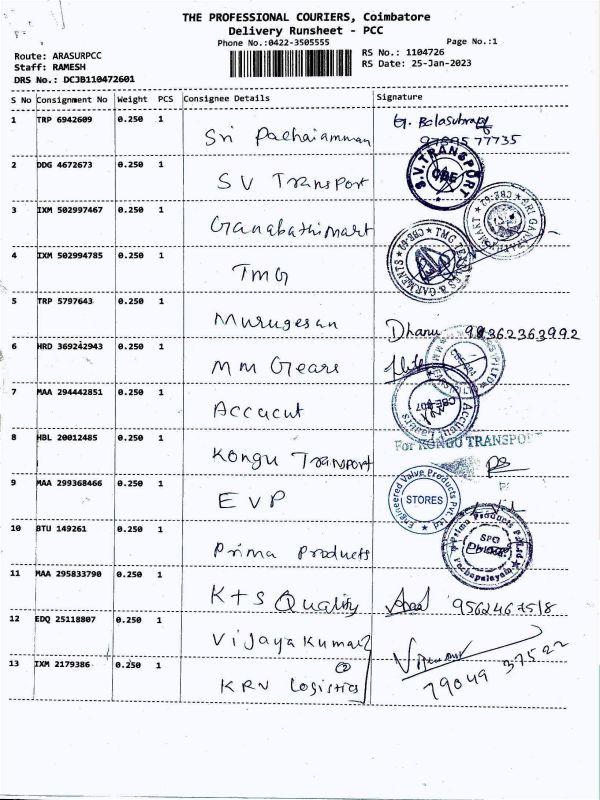 THE PROFESSIONAL COURIERS, Coimbatore
Delivery Runsheet - PCC
Phone No.:0422-3505555
Page No.:1
Route: ARASURPCC
RS No.: 1104726
Staff: RAMESH
RS Date: 25-Jan-2023
DRS No.: DCJB110472601
S No Consignment No Weight PCS Consignee Details Signature
1 TRP 6942609 0.250 1 Sri Pachaiamman G. Balasubra
77735
2 DDG 4672673 0.250 1 SV Transport S.V.TRANSPORT CBE
3 IXM 502997467 0.250 1 Ganabathimart SRI GANAPATHY SMART CBE-62
4 IXM 502994785 0.250 1 TMG TMG TEXTILES & GARMENTS CBE-62
5 TRP 5797643 0.250 1 Murugesan Dhanu 99362363992
6 HRD 369242943 0.250 1 MM Gears
7 MAA 294442851 0.250 1 Accacut
8 HBL 20012485 0.250 1 Kongu Transport For KONGU TRANSPORT
9 MAA 299368466 0.250 1 EVP Engineered Valve Products Pvt Ltd STORES
10 BTU 149261 0.250 1 Prima Products Prima Products P Ltd Pachapalayam
11 MAA 295833790 0.250 1 K+S Quality 9562467518
12 EDQ 25118807 0.250 1 Vijayakumar
13 IXM 2179386 0.250 1 KRN Logistics 79049 37522